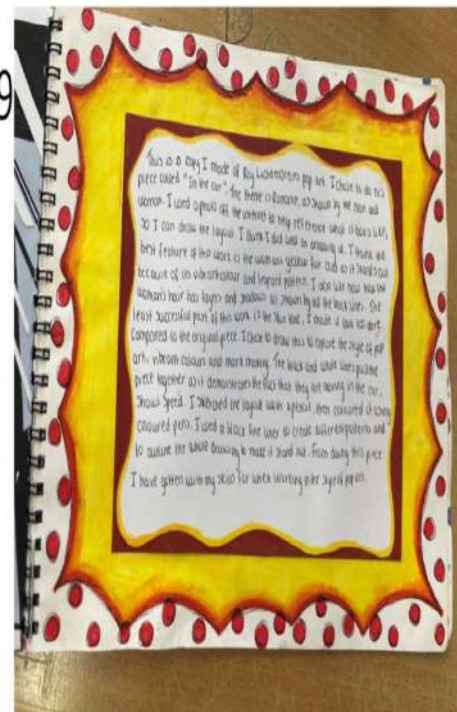 9
This is a copy I made of Roy Lichtenstein's pop art. I chose to do his
piece called "In the car". The theme is Romance, as shown by the man and
woman. I used a photo off the internet to help reference what it looks like,
so I can draw the layout. I think I did well on drawing it. I think the
best feature of this work is the womans yellow fur coat as it stands out
because of its vibrant colour and leopard pattern. I also like how the
woman's hair has layers and shadows as shown by all the black lines. The
least successful part of this work is the skin tone, I made it look too dark
compared to the original piece. I chose to draw this to explore the style of pop
art, vibrant colours and mark making. The black and white lines pull the
piece together as it demonstrates the fact that they are moving in the car,
shows speed. I sketched the layout with a pencil, then coloured it using
coloured pens. I used a black fine liner to create different patterns and
to outline the whole drawing to make it stand out. From doing this piece
I have gotten with my skills for when working in the style of pop art.